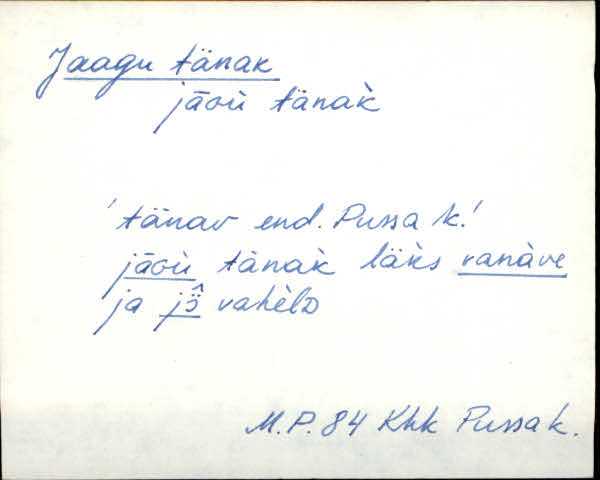 Jaagu tänak
jāoù tänak̀
'tänav end. Pussa k.'
jāoù tänak̀ läks vanàve
ja jȫ̂ vahèlD
M.P. 84 Khk Pussa k.